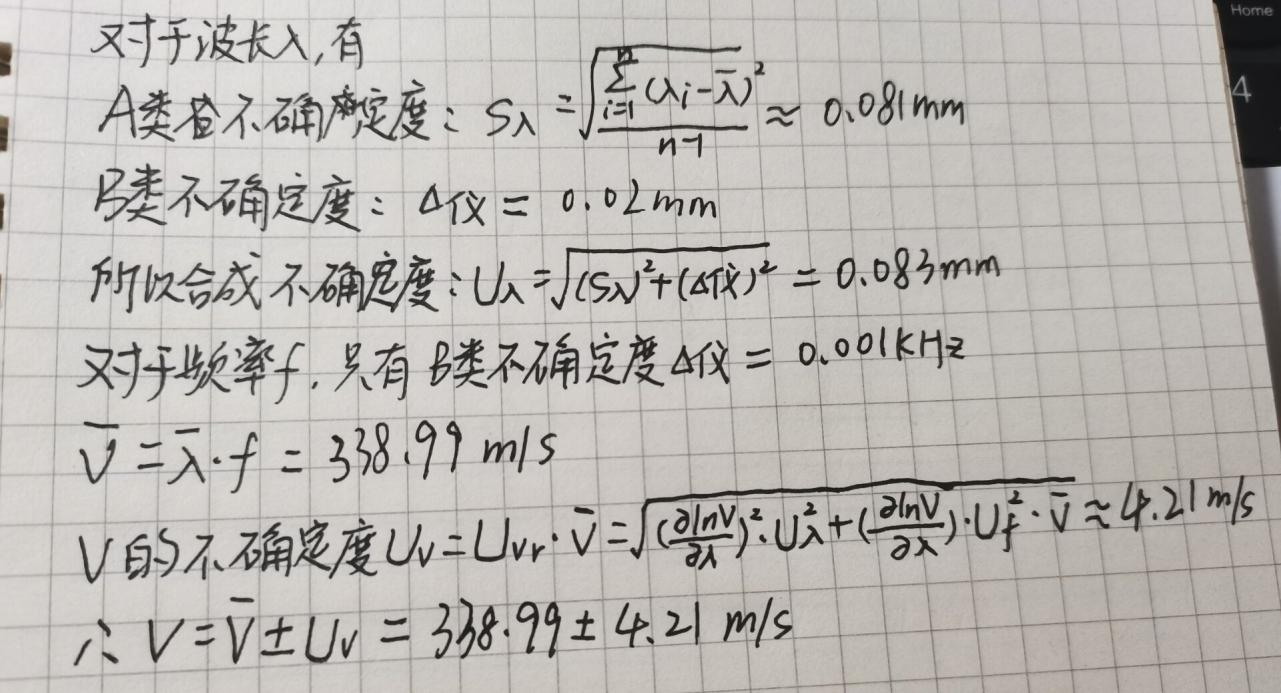 Home
4
对于波长λ,有
A类不确定度: Sλ = √(∑(i=1→n)(λi-λ̄)²/(n-1)) ≈ 0.081mm
B类不确定度: Δ仪 = 0.02mm
所以合成不确定度: Uλ = √((Sλ)²+(Δ仪)²) = 0.083mm
对于频率f,只有B类不确定度Δ仪 = 0.001KHz
V̄ = λ̄·f = 338.99 m/s
V的不确定度Uv = Uvr·V̄ = √((∂lnV/∂λ)²·Uλ²+(∂lnV/∂λ)·Uf²·V̄) ≈ 4.21 m/s
∴ V = V̄ ± Uv = 338.99 ± 4.21 m/s